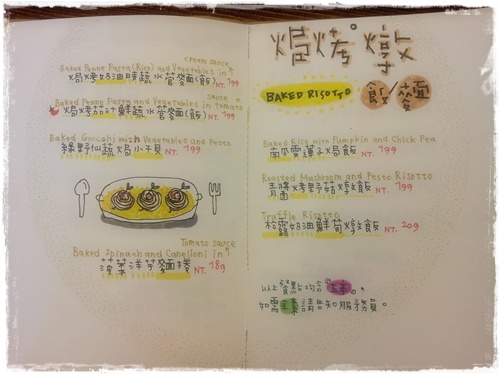 cream sauce
Baked Penne Pasta (Rice) and Vegetables in
焗烤奶油時蔬水管麵(飯) NT. 199
sauce
Baked Penne Pasta and Vegetables in tomato
焗烤茄汁鮮蔬水管麵(飯) NT. 199
Baked Gnocchi with Vegetables and Pesto
綠野仙蔬焗小貝 NT. 199
Tomato sauce
Baked Spinach and Canelloni in
菠菜洋芋麵捲 NT. 189
焗烤 燉
BAKED RISOTTO
飯/麵
Baked Rice with Pumpkin and Chick Pea
南瓜雪蓮子焗飯 NT. 199
Roasted Mushroom and Pesto Risotto
青醬烤野菇燉飯 NT. 199
Truffle Risotto
松露奶油鮮菇燉飯 NT. 209
以上餐點均含"五辛"。
如需全素請告知服務員。